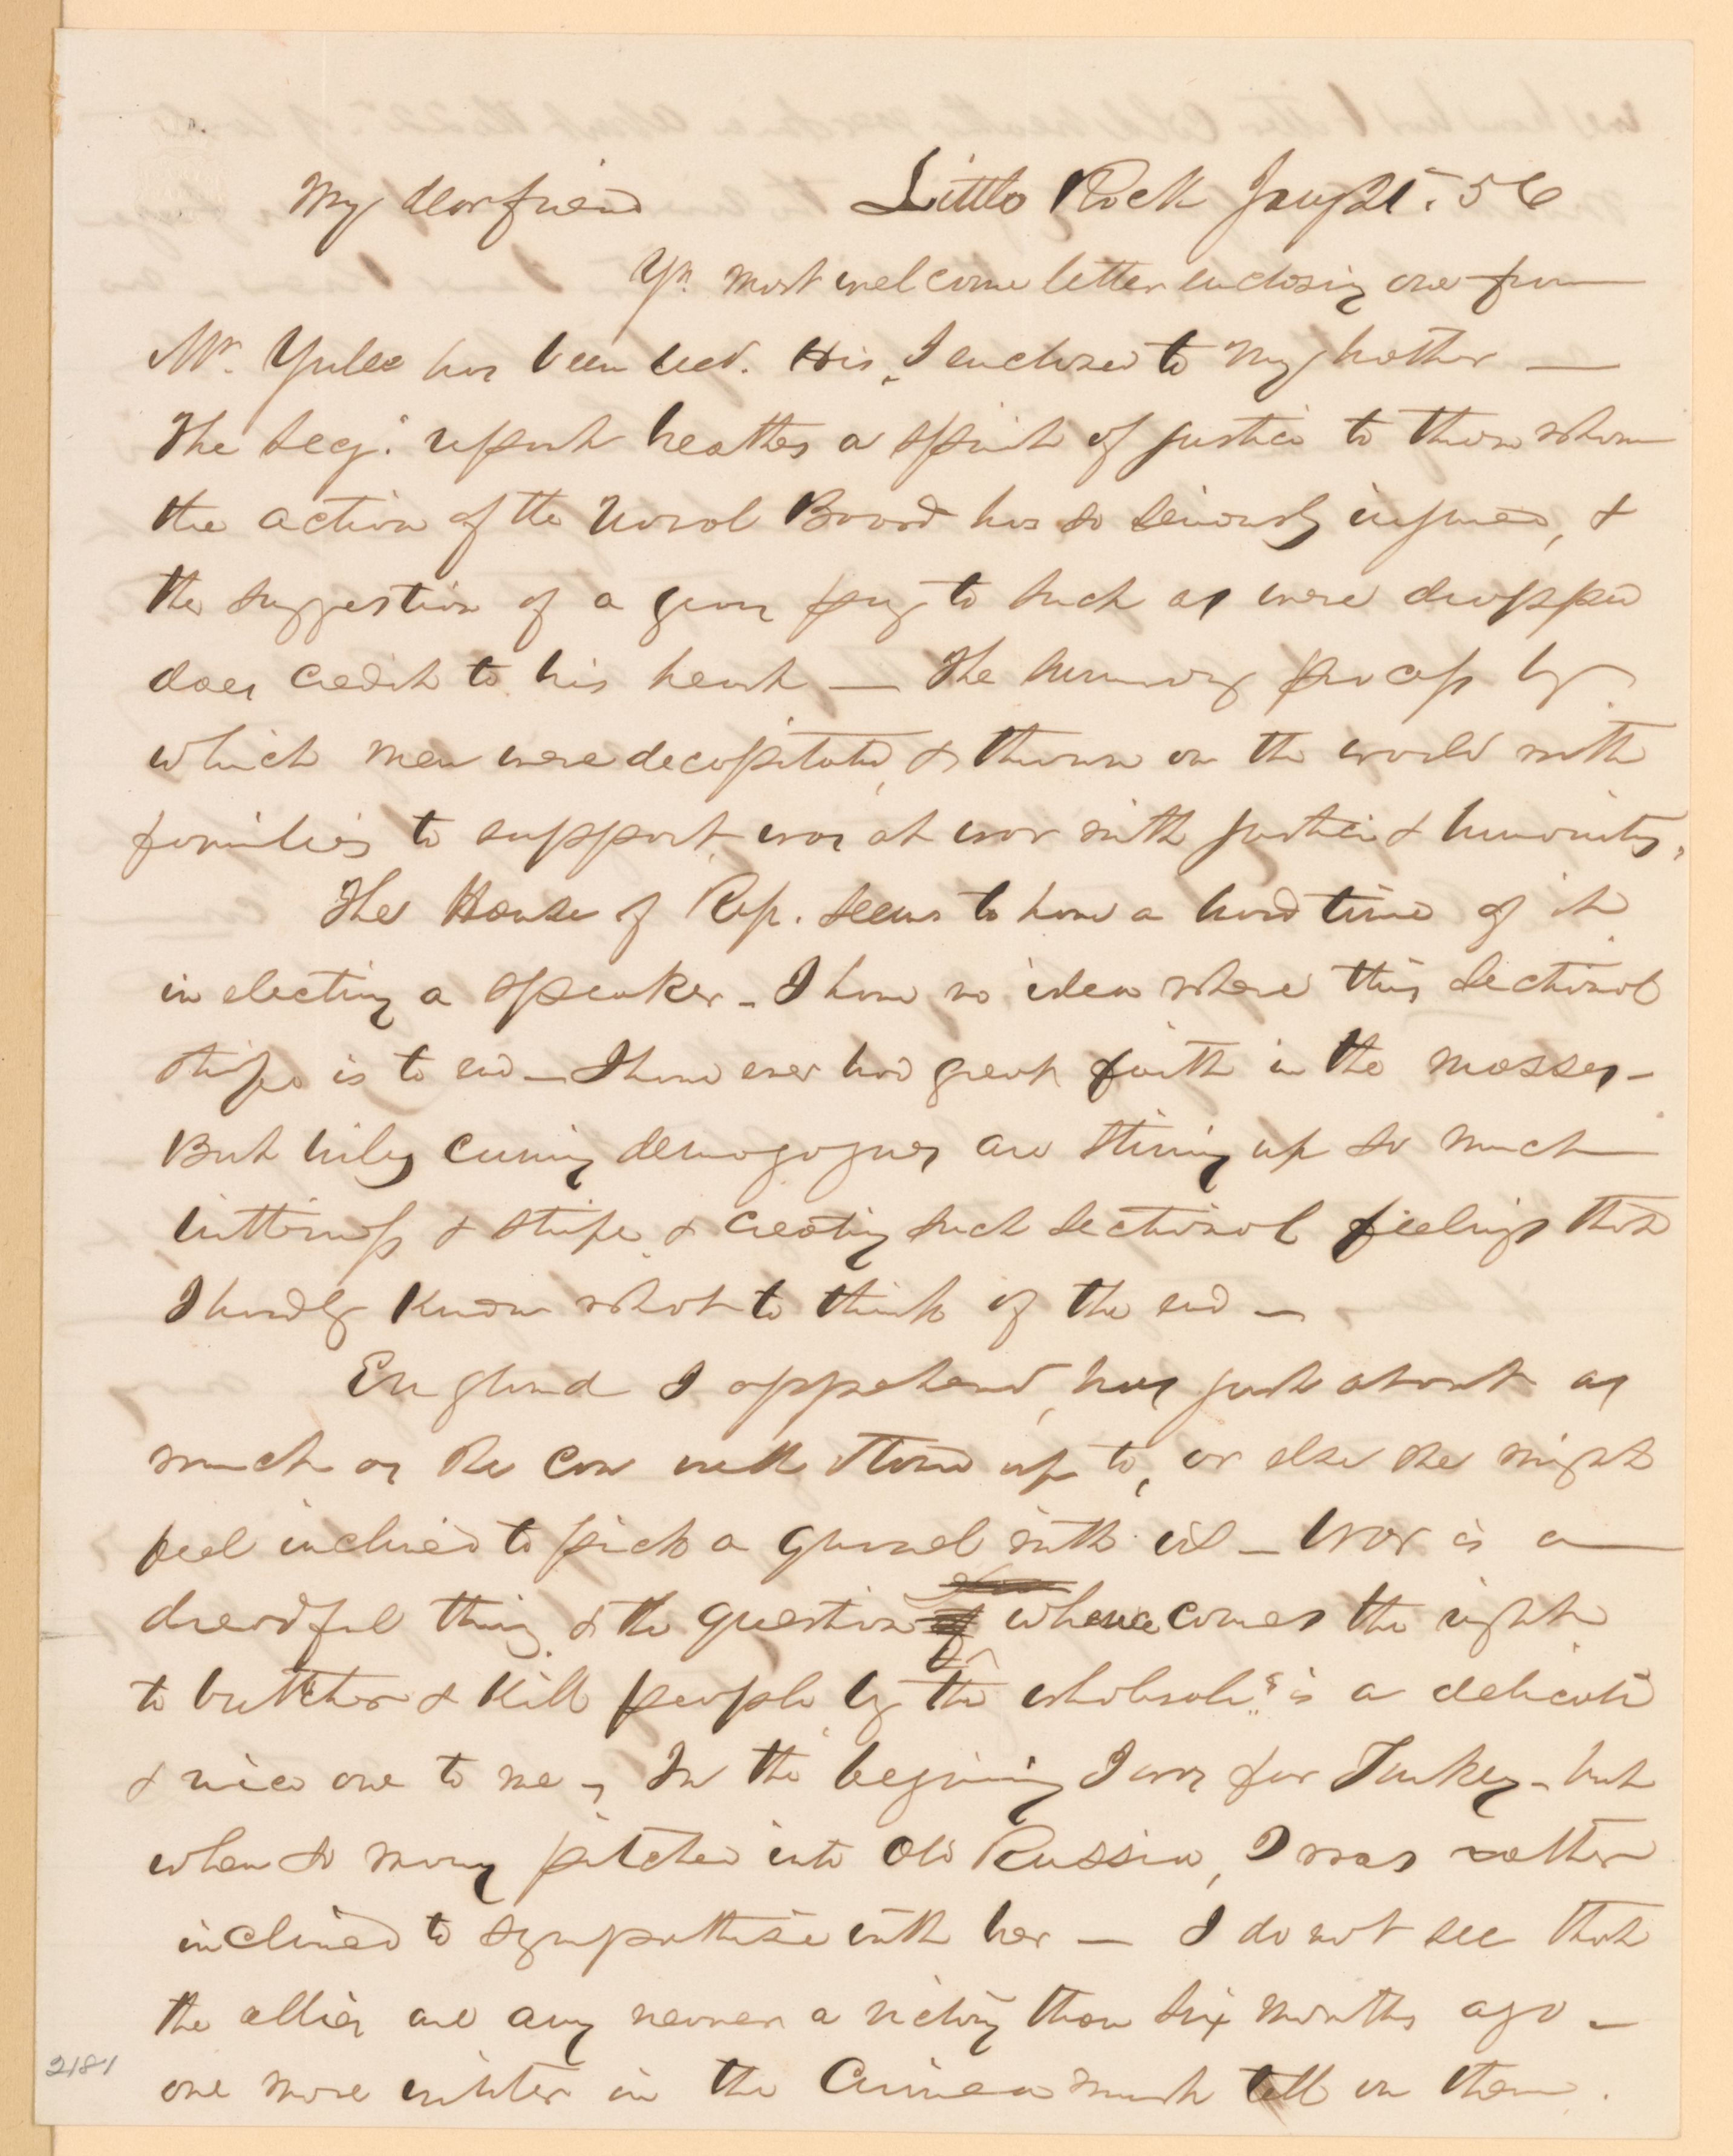 My dear friend Little Rock Jany 21. 56
Yr. most welcome letter enclosing one from
Mr. Yulee has been recd. His, I enclosed to my brother —
The Secy. report breathes a spirit of justice to those whom
the action of the Naval Board has so seriously injured, &
the suggestion of a years pay to such as were dropped
does credit to his heart — The summary process by
which men were decapitated, & thrown on the world with
families to support was at war with justice & humanity.
The House of Rep. seems to have a hard time of it
in electing a speaker – I have no idea where this sectional
strife is to end – I have ever had great faith in the masses –
But wily cuning demagogues are stiring up so much
bitterness & strife, & creating such sectional feelings that
I hardly know what to think of the end –
England I apprehend, has just about as
much as she can well stand up to, or else she might
feel inclined to pick a quarrel with us – War is a
dreadful thing, & the question whence comes the right
to butcher & kill people by the wholesale" is a delicate
& nice one to me – In the begining I was for Turkey – but
when so many pitched into Old Russia, I was rather
inclined to sympathise with her – I do not see that
the allies are any nearer a victory than six months ago –
one more winter in the Crimea must tell on them.
2181